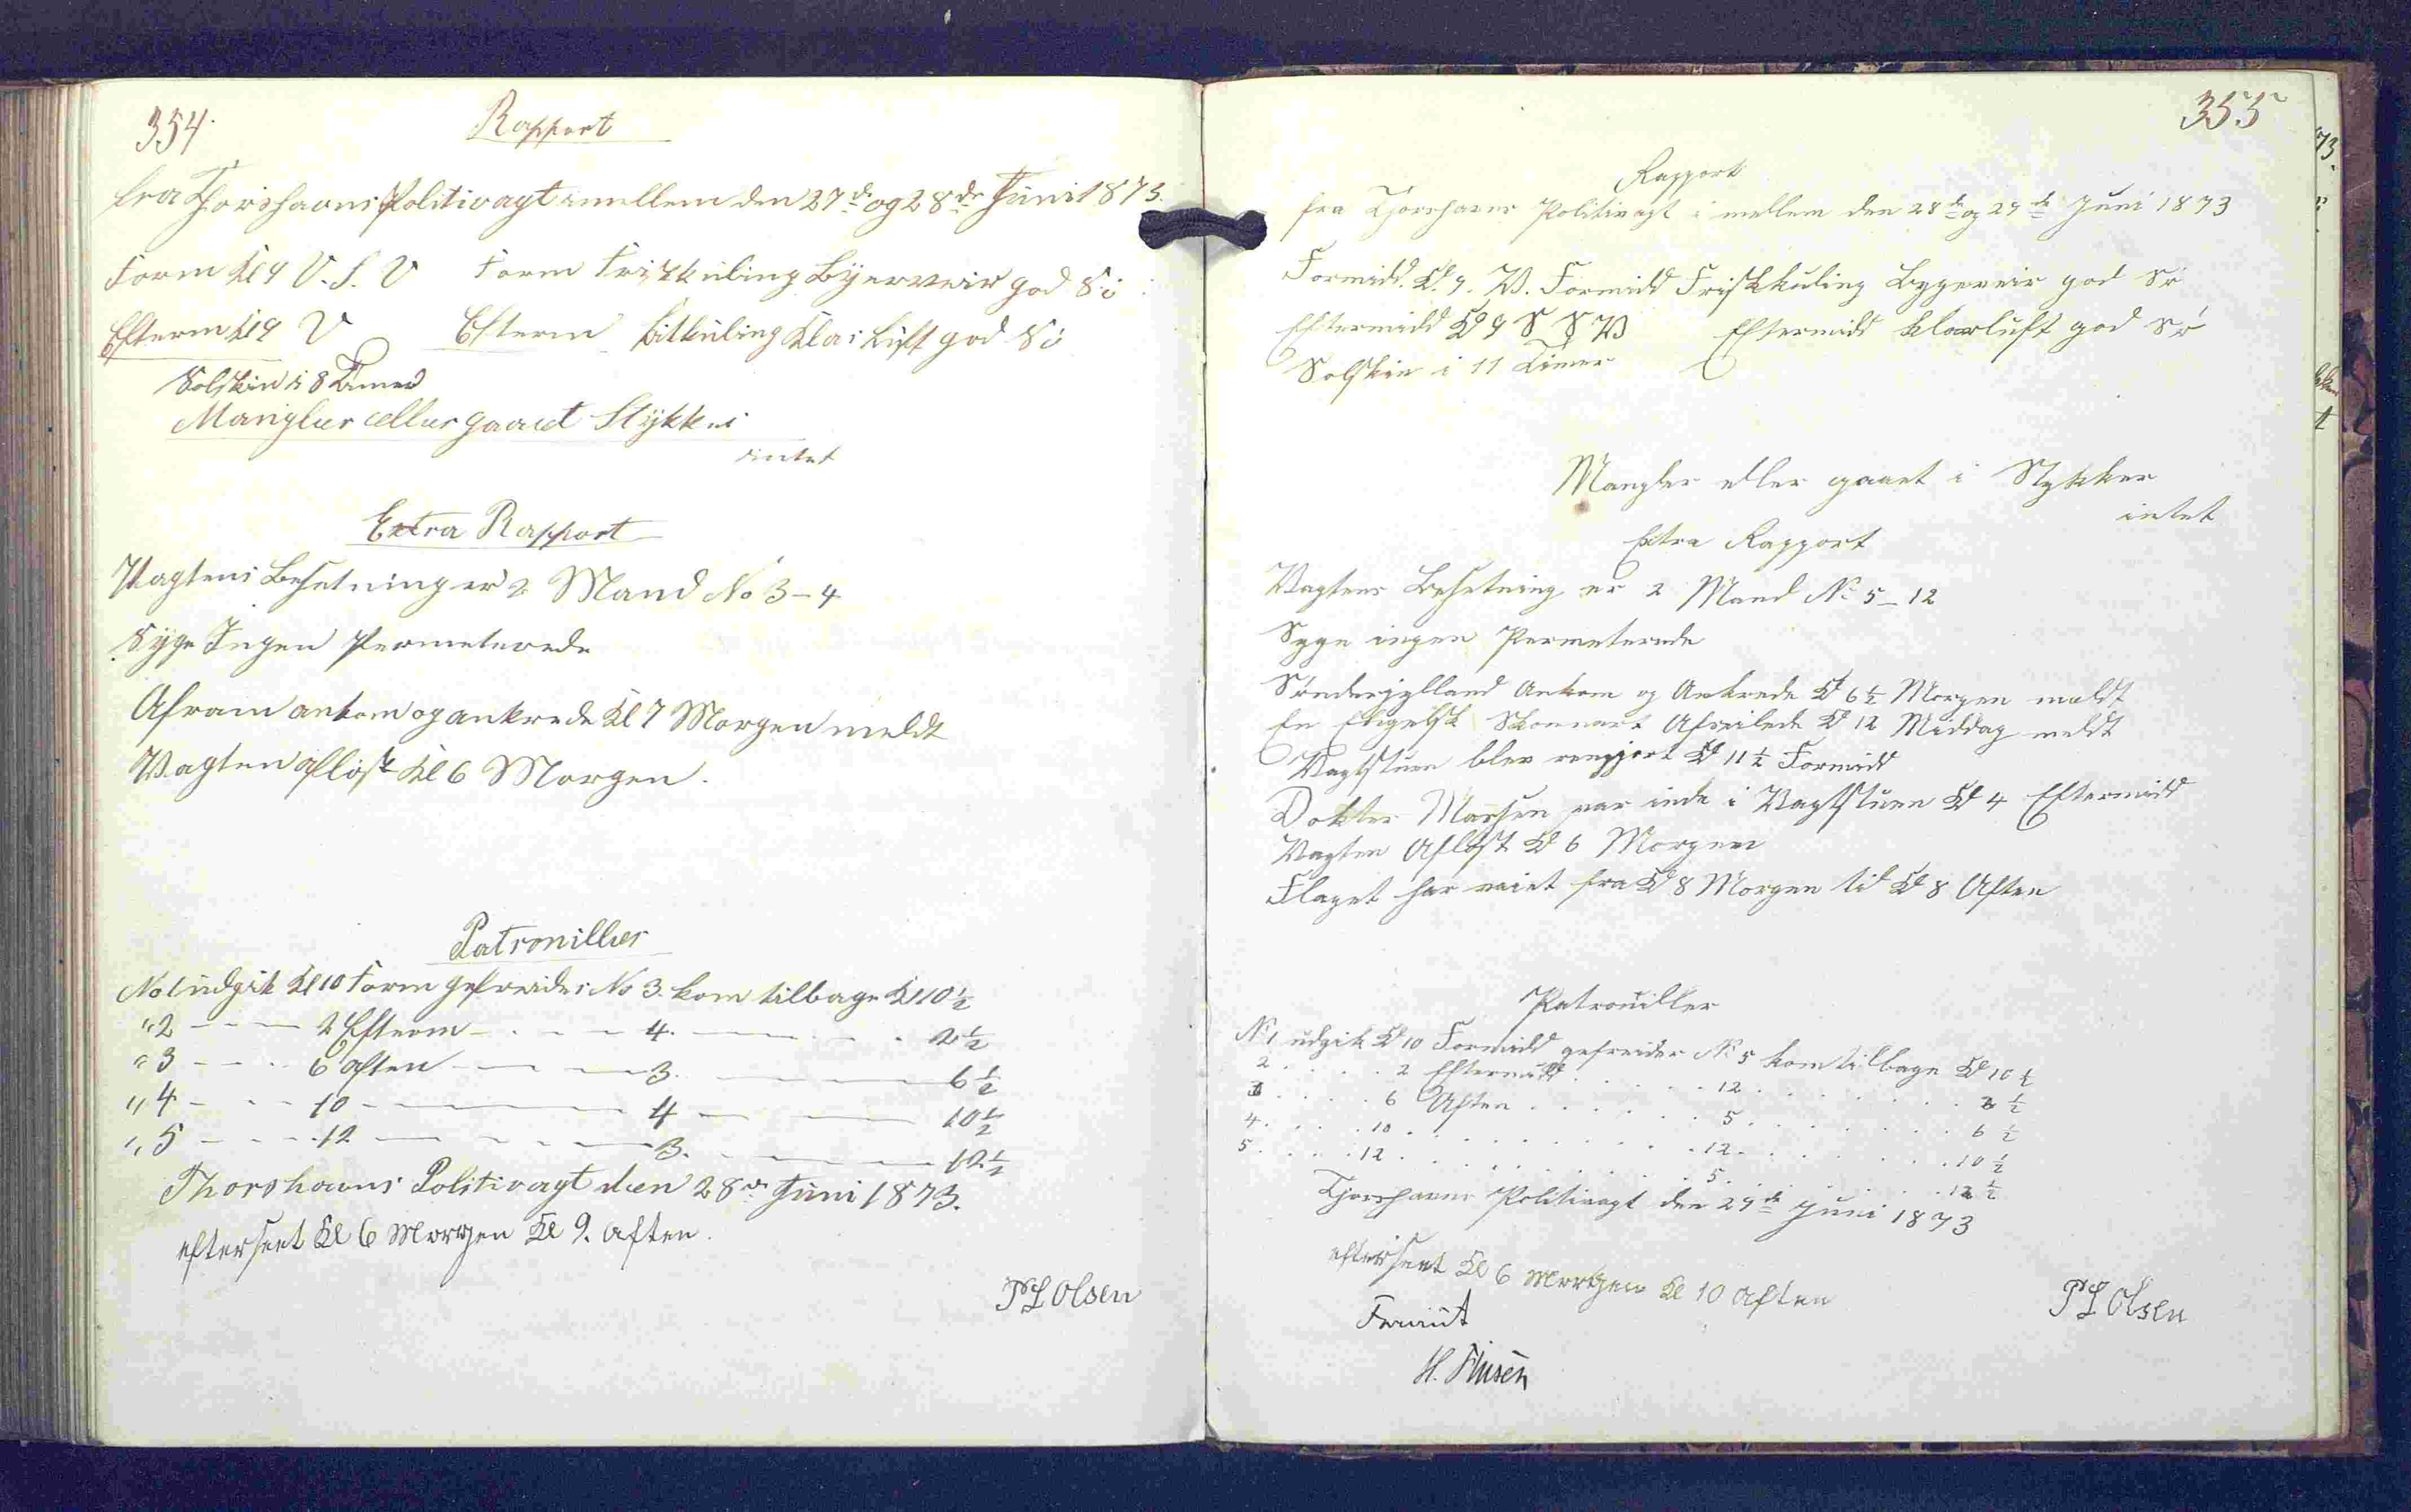 354.
Rapport
fra Thorshavns Politivagt imellem den 27de og 28de Juni 1873.
Form Kl 9 V. S. V Form Friskkuling Byerveir god Sö
Efterm Kl 9 V Efterm Litkuling Klar Luft god Sö
Solskin i 8 Timer
Mangler eller gaaet i Stykker
intet
Extra Rapport
Vagtens Besetning er 2 Mand No 3-4
Syge Ingen Permeterede
Afram ankom og ankrede Kl 7 Morgen meldt
Vagten aflöst Kl 6 Morgen.
Patrouiller
No 1 udgik Kl 10 Form gefreider No 3. kom tilbage Kl 10 1/2
" 2 - - - 2 Efterm - - - 4. - - - 2 1/2
" 3 - - - 6 Aften - - - 3. - - - 6 1/2
" 4 - - - 10 - - - 4 - - - 10 1/2
" 5 - - - 12 - - - 3. - - - 12 1/2
Thorshavns Politivagt den 28de Juni 1873.
efterseet Kl 6 Morgen Kl 9. Aften.
P L Olsen
355
Rapport
fra Thorshavns Politivagt i mellem den 28de og 29de Juni 1873
Formidd. Kl. 9. V. Formidd Friskkuling Bygeveir god Sö
Eftermidd Kl 9 S S V Eftermidd klarluft god Sö
Solskin i 11 Timer
Mangler eller gaaet i Stykker
intet
Extra Rapport
Vagtens Besetning er 2 Mand No 5-12
Syge ingen Permeterede
Sönderjylland Ankom og Ankrede Kl 6 1/2 Morgen meldt
En Engelsk Skonnert Afseilede Kl 12 Middag meldt
Vagtstuen blev rengjort Kl 11 1/2 Formidd
Dokter var inde i Vagtstuen Kl 4 Eftermidd
Vagten Aflöst Kl 6 Morgen
Flaget har vaiet fra Kl 8 Morgen til Kl 8 Aften
Patrouiller
No 1 udgik Kl 10 Formidd gefreider No 5 kom tilbage Kl 10 1/2
2 . . . . 2 Eftermidd . . . . 12 . . . . 2 1/2
3 . . . . 6 Aften . . . . 5 . . . . 6 1/2
4 . . . . 10 . . . . 12 . . . . 10 1/2
5 . . . . 12 . . . . 5 . . . . 12 1/2
Thorshavns Politivagt den 29de Juni 1873
efterseet Kl 6 Morgen Kl 10 Aften
P L Olsen
H.